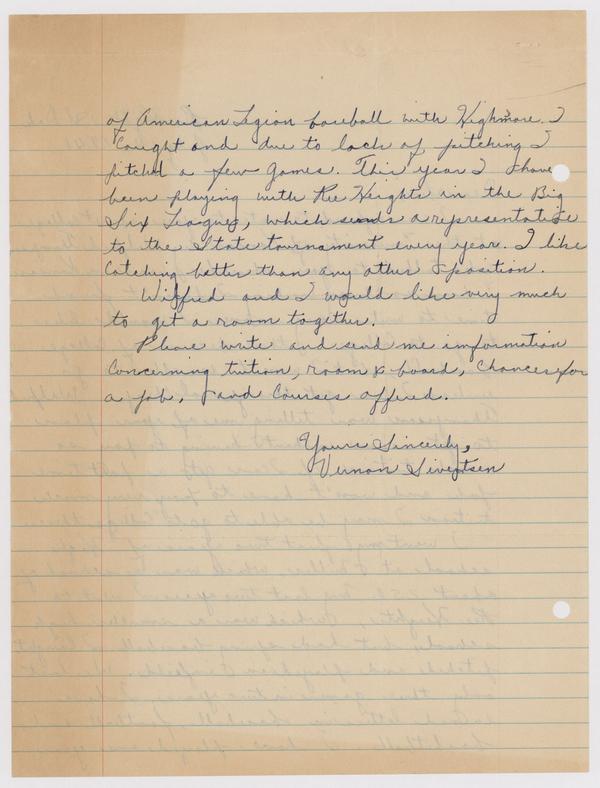 of American Legion baseball with Highmore. I
caught and due to lack of pitching I
pitched a few games. This year I have
been playing with Ree Heights in the Big
Six League, which sends a representative
to the State tournament every year. I like
catching better than any other position.
Wilfred and I would like very much
to get a room together.
Please write and send me information
concerning tuition, room & board, chances for
a job, and courses offered.
Yours Sincerely,
Vernon Sivertsen